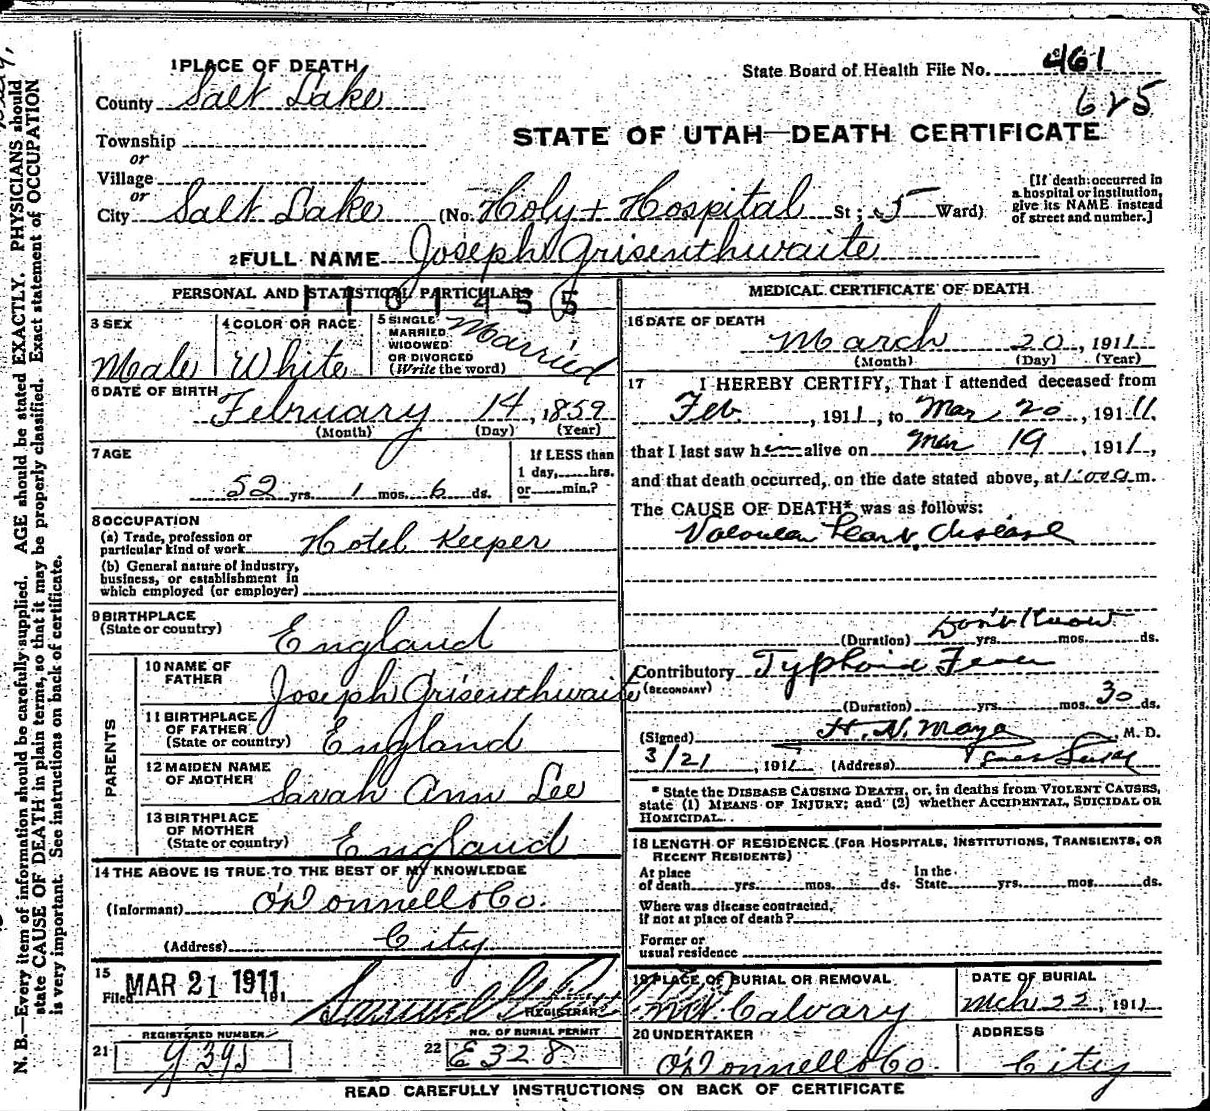 1 PLACE OF DEATH
State Board of Health File No. 461
County Salt Lake
625
Township
or
STATE OF UTAH—DEATH CERTIFICATE
Village
or
City Salt Lake (No. Holy + Hospital St; 5 Ward)
[If death occurred in
a hospital or institution,
give its NAME instead
of street and number.]
2 FULL NAME Joseph Grisenthwaite
PERSONAL AND STATISTICAL PARTICULARS
3 SEX
Male
4 COLOR OR RACE
White
5 SINGLE
MARRIED
WIDOWED
OR DIVORCED
(Write the word)
Married
6 DATE OF BIRTH
February 14, 1859
(Month) (Day) (Year)
7 AGE
52 yrs. 1 mos. 6 ds.
If LESS than
1 day, hrs.
or min.?
8 OCCUPATION
(a) Trade, profession or
particular kind of work Hotel Keeper
(b) General nature of industry,
business, or establishment in
which employed (or employer)
9 BIRTHPLACE
(State or country) England
PARENTS
10 NAME OF
FATHER Joseph Grisenthwaite
11 BIRTHPLACE
OF FATHER
(State or country) England
12 MAIDEN NAME
OF MOTHER Sarah Ann Lee
13 BIRTHPLACE
OF MOTHER
(State or country) England
14 THE ABOVE IS TRUE TO THE BEST OF MY KNOWLEDGE
(Informant) O'Donnell & Co.
(Address) City
15
Filed MAR 21 1911 191
REGISTRAR
REGISTERED NUMBER
21
NO. OF BURIAL PERMIT
22 E328
MEDICAL CERTIFICATE OF DEATH
16 DATE OF DEATH
March 20, 1911
(Month) (Day) (Year)
17 I HEREBY CERTIFY, That I attended deceased from
Feb, 1911, to Mar 20, 1911
that I last saw h alive on Mar 19, 1911,
and that death occurred, on the date stated above, at 1:00 a m.
The CAUSE OF DEATH* was as follows:
Valvular Heart disease
(Duration) Don't Know yrs. mos. ds.
Contributory Typhoid Fever
(SECONDARY)
(Duration) yrs. mos. 30 ds.
(Signed) H. N. Mayo, M. D.
3/21, 1911 (Address)
* State the DISEASE CAUSING DEATH, or, in deaths from VIOLENT CAUSES,
state (1) MEANS OF INJURY; and (2) whether ACCIDENTAL, SUICIDAL OR
HOMICIDAL.
18 LENGTH OF RESIDENCE (FOR HOSPITALS, INSTITUTIONS, TRANSIENTS, OR
RECENT RESIDENTS)
At place
of death yrs. mos. ds.
In the
State yrs. mos. ds.
Where was disease contracted,
if not at place of death?
Former or
usual residence
19 PLACE OF BURIAL OR REMOVAL
Mt. Calvary
DATE OF BURIAL
Mch 22, 1911
20 UNDERTAKER
O'Donnell & Co.
ADDRESS
City
READ CAREFULLY INSTRUCTIONS ON BACK OF CERTIFICATE
N. B.—Every item of information should be carefully supplied. AGE should be stated EXACTLY. PHYSICIANS should
state CAUSE OF DEATH in plain terms, so that it may be properly classified. Exact statement of OCCUPATION
is very important. See instructions on back of certificate.